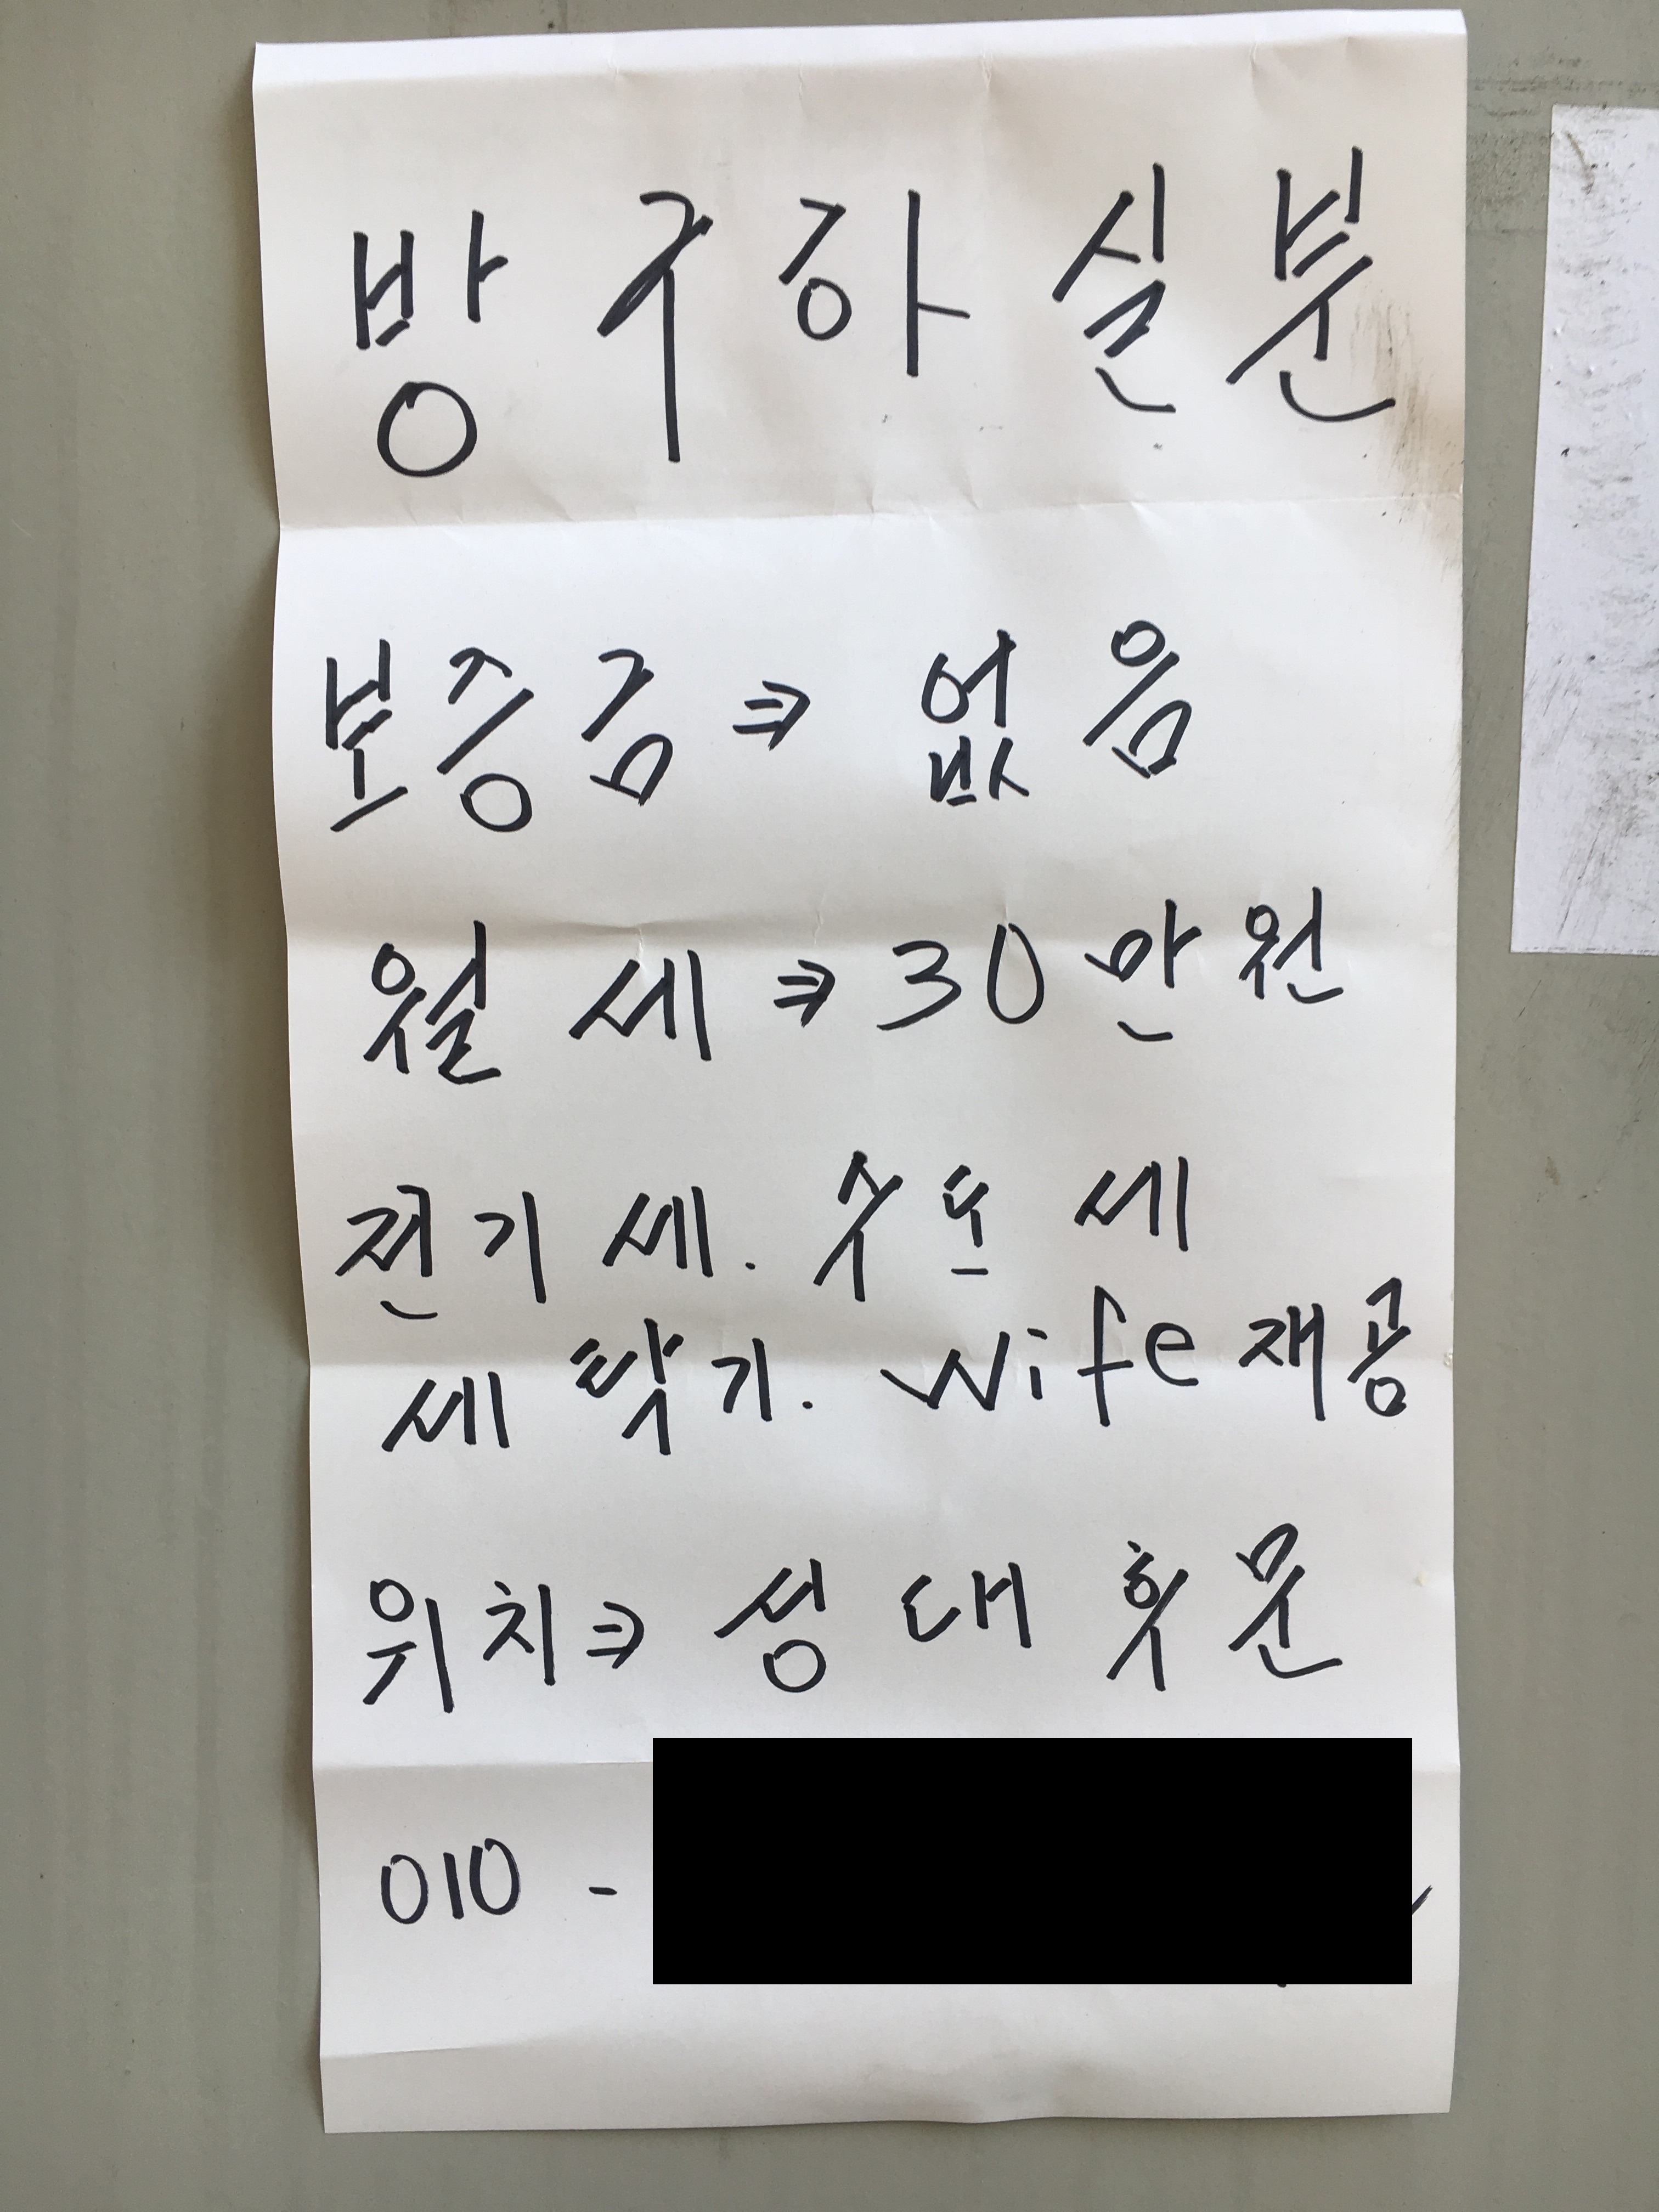 방 구하실 분
보증금 ⇒ 없음
월세 ⇒ 30만원
전기세. 수도세
세탁기. Wife 재공
위치 ⇒ 성대 훗문
010 -